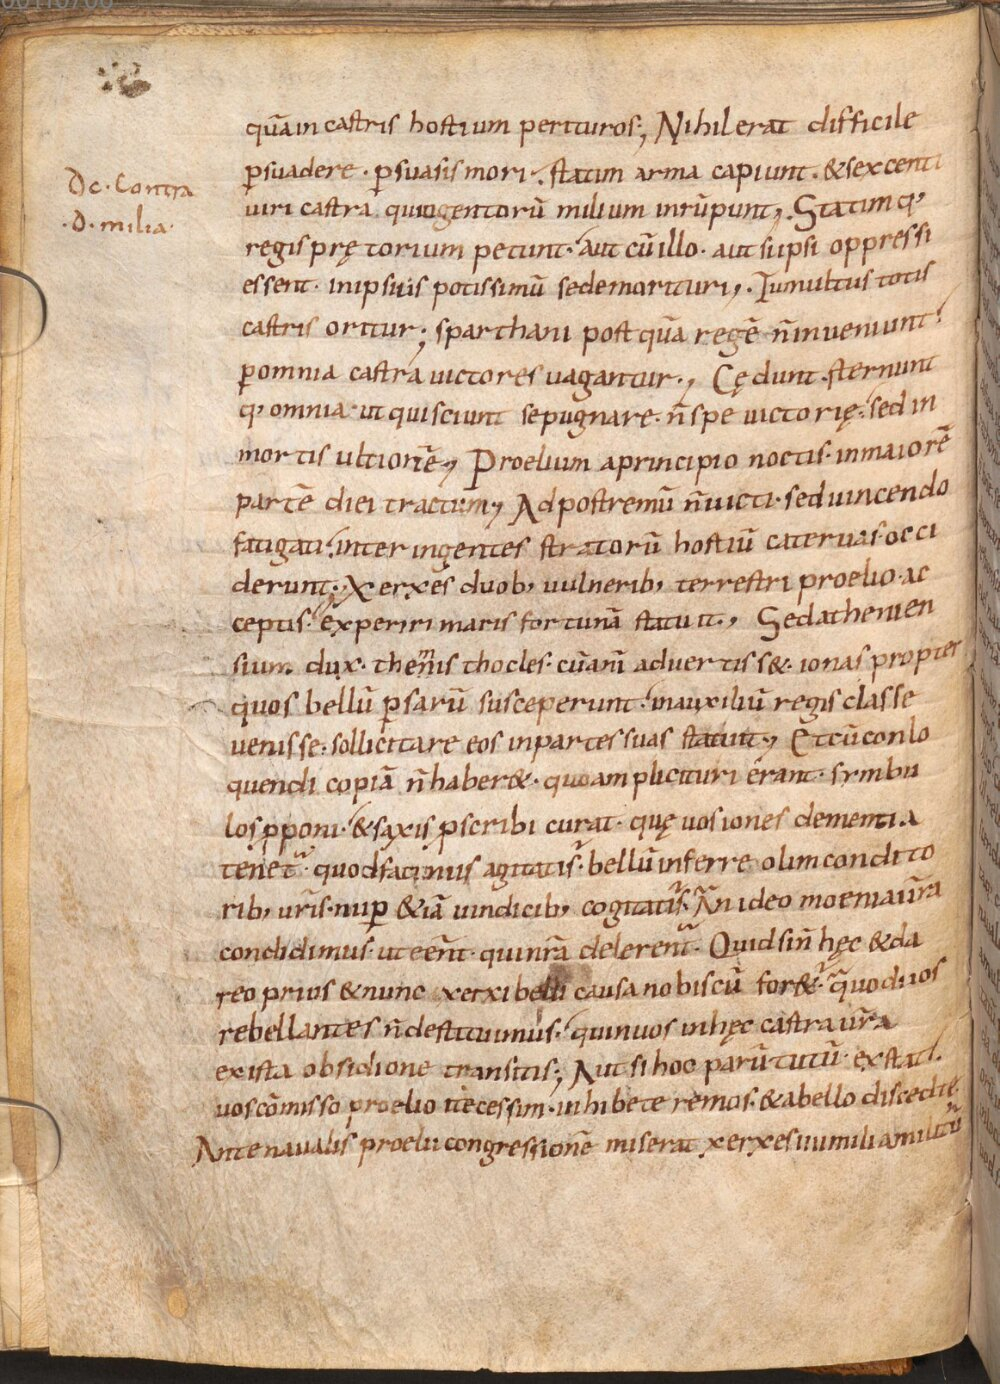 quā in castris hostium perituros; Nihil erat difficile
Dc. Contra
.D. milia.
ꝑsuadere. ꝑsuasis mori. statim arma capiunt. & sexcenti
uiri castra quingentorū milium inrūpunt; Statim q;
regis prę torium petunt. aut cū illo. aut si ipsi oppressi
essent. in ipsius potissimū sede morituri; Tumultus totis
castris oritur; sparthani post quā regē n̄ inueniunt.
ꝑ omnia castra uictores uagantur; Cędunt sternunt
q; omnia. ut qui sciunt se pugnare. n̄ spe uictorię. sed in
mortis ultionē; Proelium a principio noctis. in maiorē
partē diei tractum; Ad postremū n̄ uicti. sed uincendo
fatigati. inter ingentes stratorū hostiū cateruas. occi
derunt; Xerxes duob; uulnerib; terrestri proelio. ac
ceptis. experiri maris fortunā statuit; Sed athenien
sium dux. themis thocles. cū anī aduertiss&. ionas propter
quos bellū ꝑsarū susceperunt. in auxiliū regis classe
uenisse. sollicitare eos in partes suas statuit; Et cū conlo
quendi copiā n̄ haber&. quo amplicituri erant. simbu
los pponi. & saxis pscribi curat. quę uos iones dementia
tenet. quod facinus agitatis. bellū inferre olim condito
rib; ur̄is. nup & iā uindicib; cogitatis. An ideo moenia ur̄a
condidimus. ut eēnt. qui nr̄a delerent. Quid si n̄ hęc & da
reo prius & nunc xerxi belli causa nobiscū for&. quod uos
rebellantes n̄ destituimus. quin uos in hęc castra ur̄a
ex ista obsidione transitis; Aut si hoc parū tutū extat.
uos cōmisso proelio ite cessim. inhibete remos. & a bello discedite.
Ante naualis proelii congressionē miserat xerxes iiii milia militū